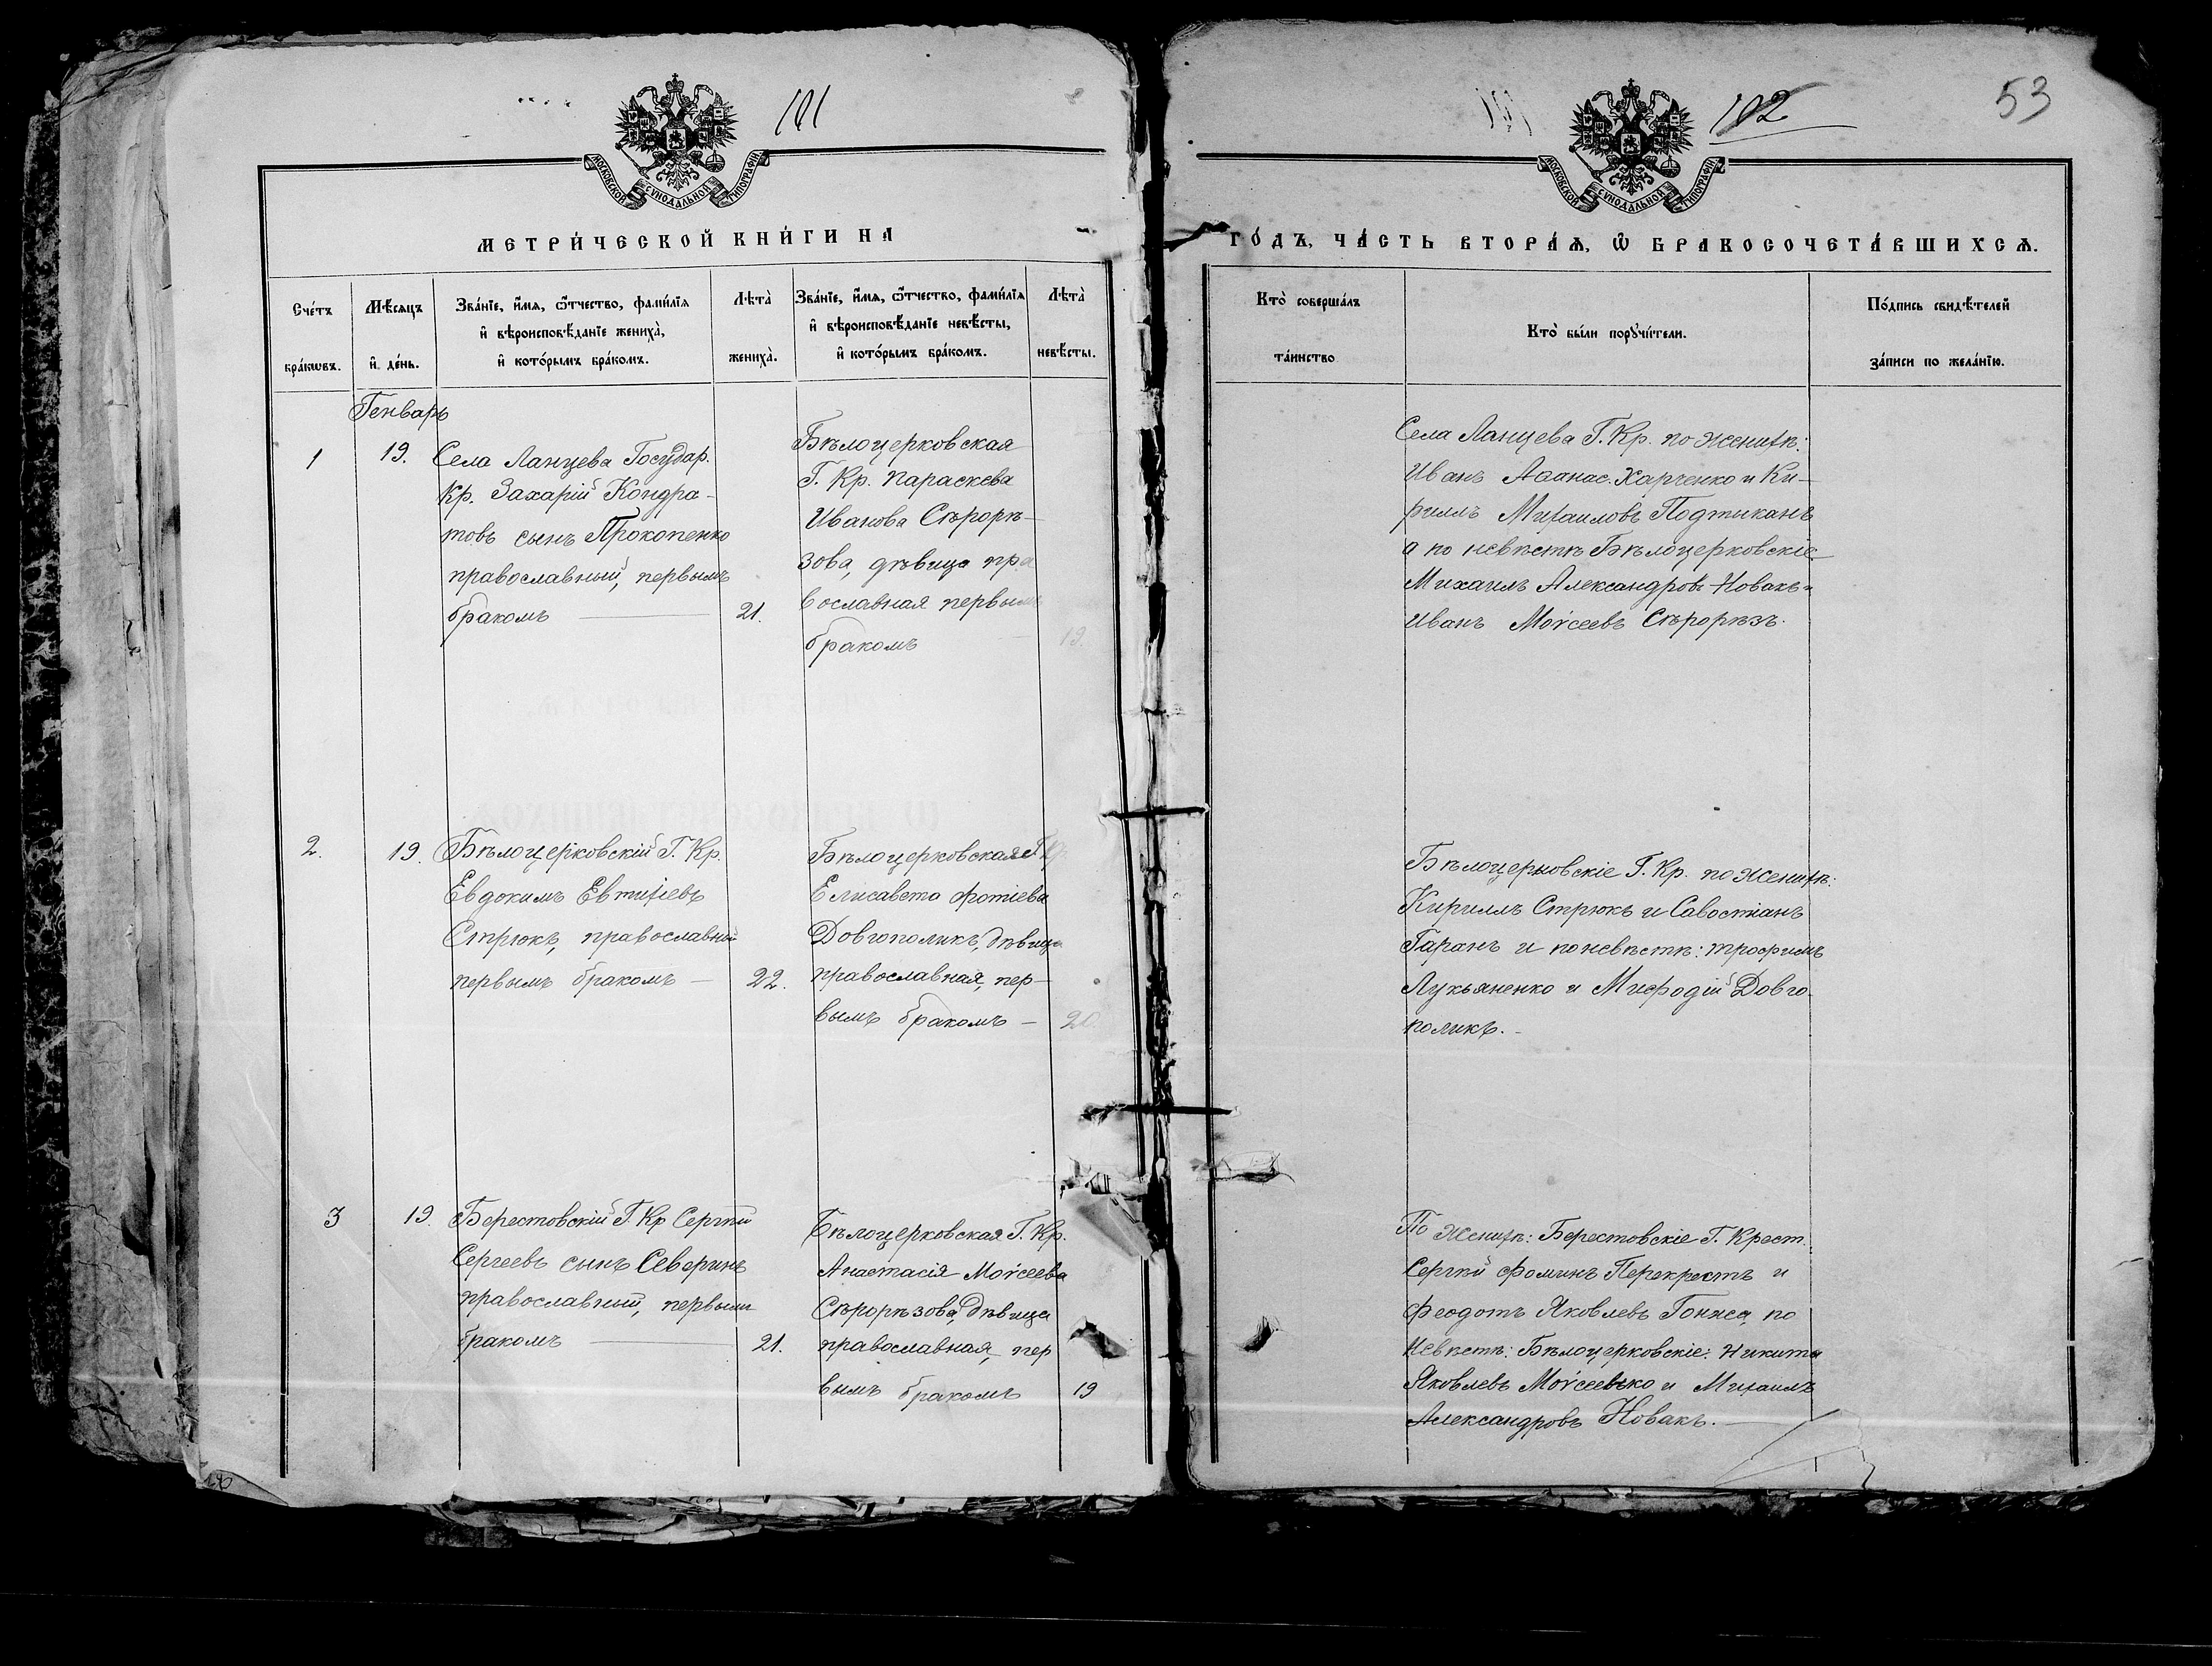 101
МОСКОВСКОЙ СѴНОДАЛЬНОЙ ТИПОГРАФІИ
МЕТРИ́ЧЕСКОЙ КНИ́ГИ НА
Сче́тъ бра́кѡвъ.
Мѣ́сяцъ и҆ де́нь.
Зва́нїе, и҆́мѧ, ѻ҆́тчество, фами́лїѧ
и҆ вѣроисповѣ́данїе жениха̀,
и҆ кото́рымъ бра́комъ.
Лѣта̀ жениха̀.
Зва́нїе, и҆́мѧ, ѻ҆́тчество, фами́лїѧ
и҆ вѣроисповѣ́данїе невѣ́сты,
и҆ кото́рымъ бра́комъ.
Лѣта̀ невѣ́сты.
Генварь
1
19.
Села Ланцева Государ.
Кр. Захарій Кондра-
товъ сынъ Прокопенко
православный, первымъ
бракомъ — 21.
Бѣлоцерковская
Г. Кр. Параскева
Иванова Сѣрорѣ-
зова, дѣвица пра
вославная первымъ
бракомъ — 19.
2.
19.
Бѣлоцерковскій Г. Кр.
Евдокимъ Евтихіевъ
Стрюкъ, православный
первымъ бракомъ — 22.
Бѣлоцерковская Г. Кр.
Елисавета Фотіева
Довгополикъ, дѣвица
православная, пер-
вымъ бракомъ — 20.
3
19.
Берестовскій Г. Кр Сергѣй
Сергеевъ сынъ Северинъ
православный, первымъ
бракомъ — 21.
Бѣлоцерковская Г. Кр.
Анастасія Моѵсеева
Сѣрорѣзова, дѣвица
православная, пер
вымъ бракомъ 19
102
53
МОСКОВСКОЙ СѴНОДАЛЬНОЙ ТИПОГРАФІИ
ГО́ДЪ, ЧА́СТЬ ВТОРА́Ѧ, Ѡ҆ БРАКОСОЧЕТА́ВШИХСѦ.
Кто̀ соверша́лъ
та́инство
Кто̀ бы́ли порꙋчи́тели.
По́дпись свидѣ́телей
за́писи по жела́нїю.
Села Ланцева Г. Кр. по женихѣ:
Иванъ Аѳанас. Харченко и Ки-
риллъ Михаиловъ Подтыканъ
а по невѣстѣ Бѣлоцерковскіе
Михаилъ Александровъ Новакъ и
Иванъ Моѵсеевъ Сѣрорѣзъ.
Бѣлоцерковскіе Г. Кр. по женихѣ:
Кириллъ Стрюкъ и Савостіанъ
Гаранъ и по невѣстѣ: Трофимъ
Лукьяненко и Мифодій Довго-
поликъ. -
По женихѣ: Берестовскіе Г. Крест.
Сергѣй Фоминъ Перекрестъ и
Феодотъ Яковлевъ Гонжа, по
невѣстѣ: Бѣлоцерковскіе: Никита
Яковлевъ Моѵсеевько и Михаилъ
Александровъ Новакъ. —